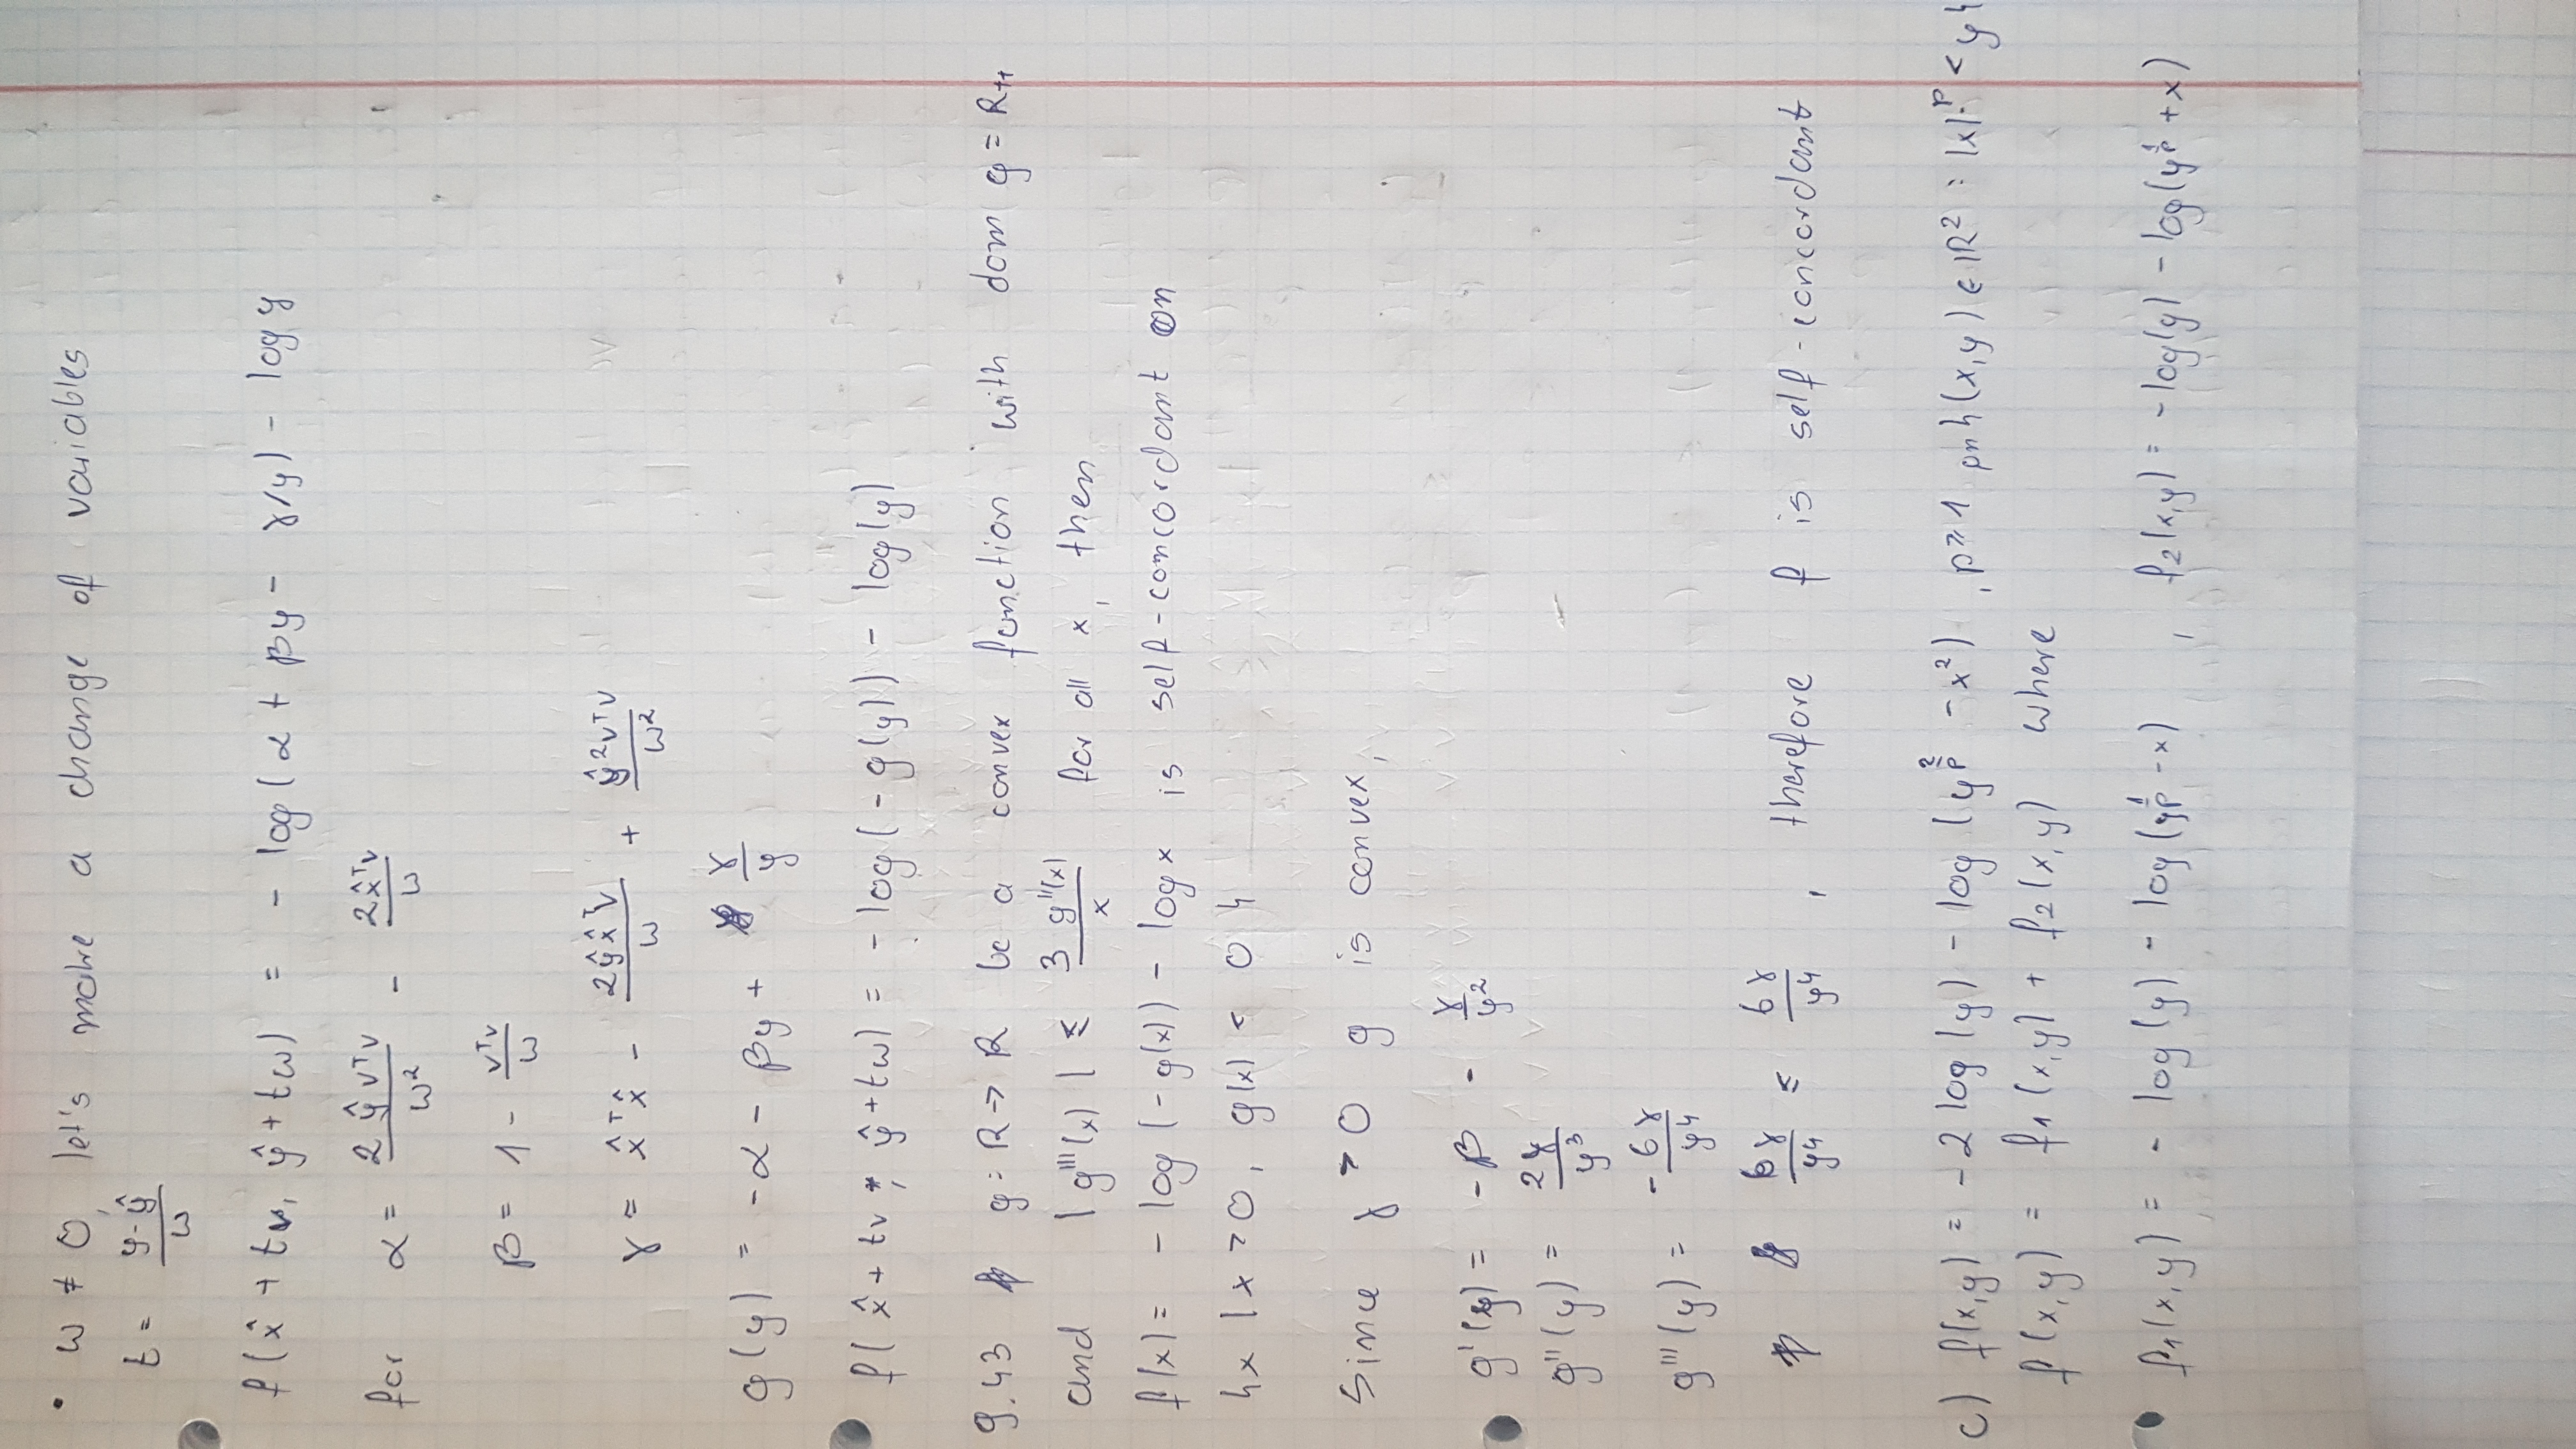 • w ≠ 0, let's make a change of variables
t = (y - ŷ)/w
f(x̂ + tv, ŷ + tw) = - log(α + βy - γ/y) - log y
for α = 2ŷvᵀv/w² - 2x̂ᵀv/w
β = 1 - vᵀv/w
γ = x̂ᵀx̂ - 2ŷx̂ᵀv/w + ŷ²vᵀv/w²
g(y) = -α - βy + γ/y
f(x̂ + tv, ŷ + tw) = - log(-g(y)) - log(y)
9.43 g: R → R be a convex function with dom g = R₊₊
and |g'''(x)| ≤ 3 g''(x)/x for all x, then
f(x) = - log(-g(x)) - log x is self-concordant on
{x | x > 0, g(x) < 0}
Since γ > 0 g is convex,
g'(y) = -β - γ/y²
g''(y) = 2γ/y³
g'''(y) = -6γ/y⁴
6γ/y⁴ ≤ 6γ/y⁴, therefore f is self-concordant
c) f(x,y) = -2 log(y) - log(y^(2/p) - x²), p ≥ 1 on {(x,y) ∈ ℝ² : |x|^p < y}
f(x,y) = f₁(x,y) + f₂(x,y) where
f₁(x,y) = - log(y) - log(y^(1/p) - x), f₂(x,y) = -log(y) - log(y^(1/p) + x)